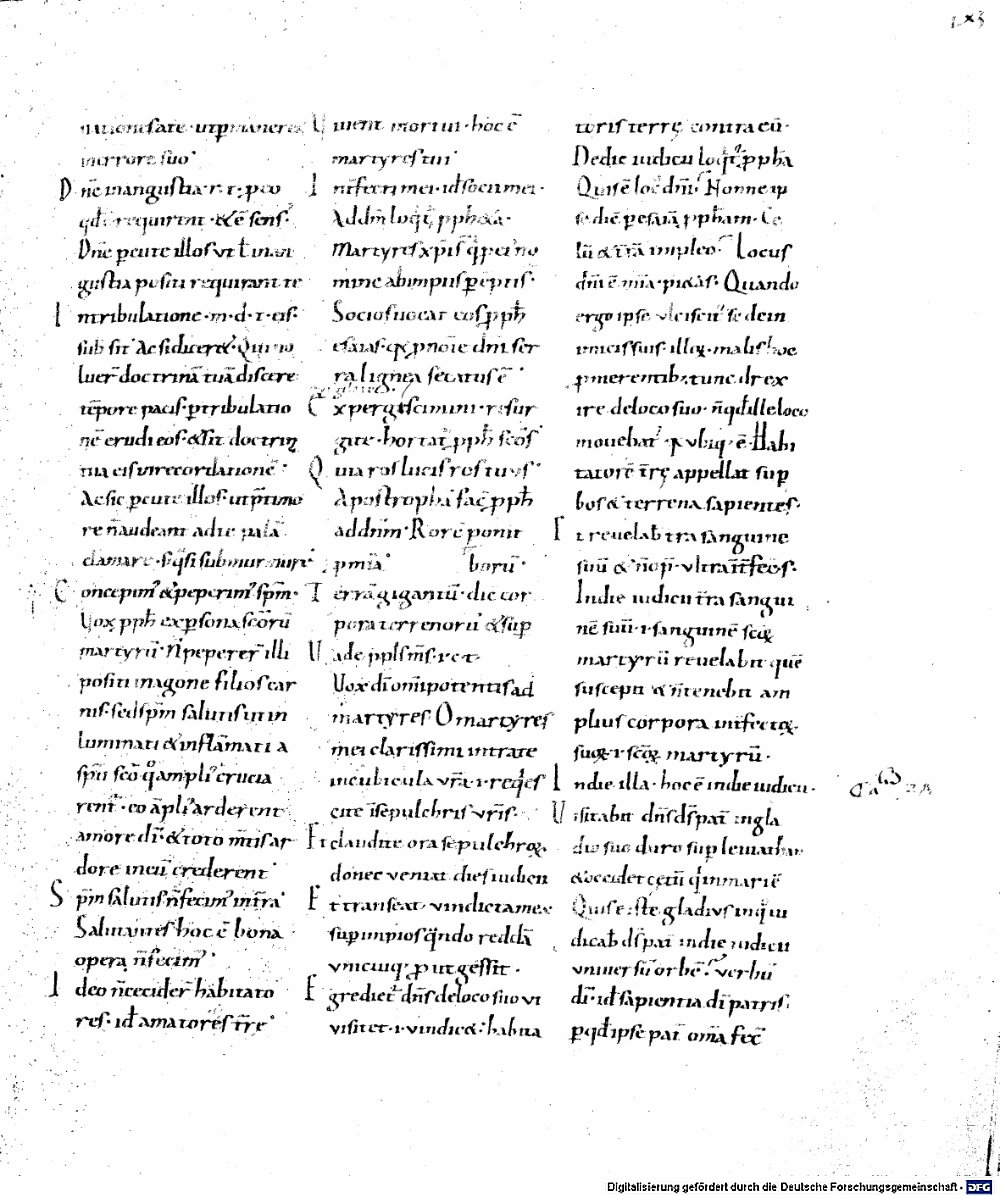 sate· ut pmaneret
in errore suo·
Dn̄e in angustia· r· t· p eo
qđ requirent· & ē sens᾽
Dn̄e pcute illos ut ł in an
gustia positi requirant te
In tribulatione· m· d· t· eis·
sub sit᾽ Ac si dicer& Qui no
luer̄ doctrinā tuā discere
tēpore pacis· p tribulatio
nē erudi eos· & sit doctrin̨
tua eis in recordationē·
Ac sic pcute illos· ut p timo
re n̄ audeant ad te palā
clamare· s; q̄si submurmuri·
Concepim᾽ & peperim᾽ spm̄·
Vox pph̄ ex psona sc̄orū
martyrū· N̄ peperer̄ illi
positi in agone filios car
nis· sed spm̄ salutis ut in
luminati & inflāmati a
spū sc̄o q̊ ampli᾽ crucia
rent᾽· eo āpli᾽ arderent
amore di᾽· & toto m̄tis ar
dore in eū crederent·
Spm̄ salutis n̄ fecim᾽ in tr̄a·
Salutares hoc ē bona
opera n̄ fecim᾽·
Ideo n̄ cecider̄ habitato
res· id amatores tr̄e·
Viuent mortui· hoc ē
martyres tui·
Interfecti mei· id socii mei·
Ad dm̄ loqt᾽ pph&a·
Martyres xp̄i
mine ab impiis pēptis·
Socios uocat eos pph̄
esaias· q̨ p noīe dn̄i ser
ra lignea secatus ē·
Expergescimini· resur
gite· hortat᾽ pph̄ sc̄os·
Quia ros lucis ros tuus·
Apostropha fac̄ pph̄
ad dn̄m· Rorē ponit
p mia· borū·
Terrā gigantū· dic cor
pora terrenorū & sup
Vade ppls m̄s· r· e t·
Vox dī omīpotentis ad
martyres O martyres
mei clarissimi intrate
in cubicula vr̄a· i· reqes
cite ī sepulchris vr̄is·
Et claudite ora sepulchrox̨
donec veniat dies iudicii
Et transeat vindicta mea
sup impios qndo reddā
vnicuiq; p ut gessit·
Egrediet᾽ dn̄s de loco suo vt
visitet· i· vindic&· habita
toris terre̜ contra eū·
De die iudicii loqt᾽ pph̄a
Quis ē loc᾽ dn̄i· Nonne ip
se dic̄ p esaiā pph̄am· Ce
lū & tr̄ā impleo· Locus
dn̄i ē mīa· pi&as· Quando
ergo ipse ulciscit᾽ se de in
imicis suis illox̨· malis hoc
p merentib; tunc dr̄ ex
ire de loco suo· n̄ qđ ille loco
mouebat᾽ q vbiq; ē· Habi
tatorē tr̄e appellat sup
bos & terrena sapientes·
Et reuelab tra sanguinē
suū & n̄ op̄· vltra īt̄fectos·
In die iudicii tr̄a sangui
nē suū· i· sanguinē sc̄ox̨
martyrū reuelabit quē
suscepit & n̄ tenebit am
plius corpora int̄fectox̨
suox̨· i· sc̄ox̨ martyrū·
In die illa· hoc ē in die iudicii·
Visitabit dn̄s ds pat̄ in gla
dio suo duro sup leuiathan
& occidet cetū q in mari ē
Quis ē iste gladius in qu
dicab ds pat̄ in die iudicii
vniuersū orbē· Verbū
di᾽· id sapientia di patris·
p qđ ipse pat̄ om̄ia fec̄·
Digitalisierung gefördert durch die Deutsche Forschungsgemeinschaft - DFG